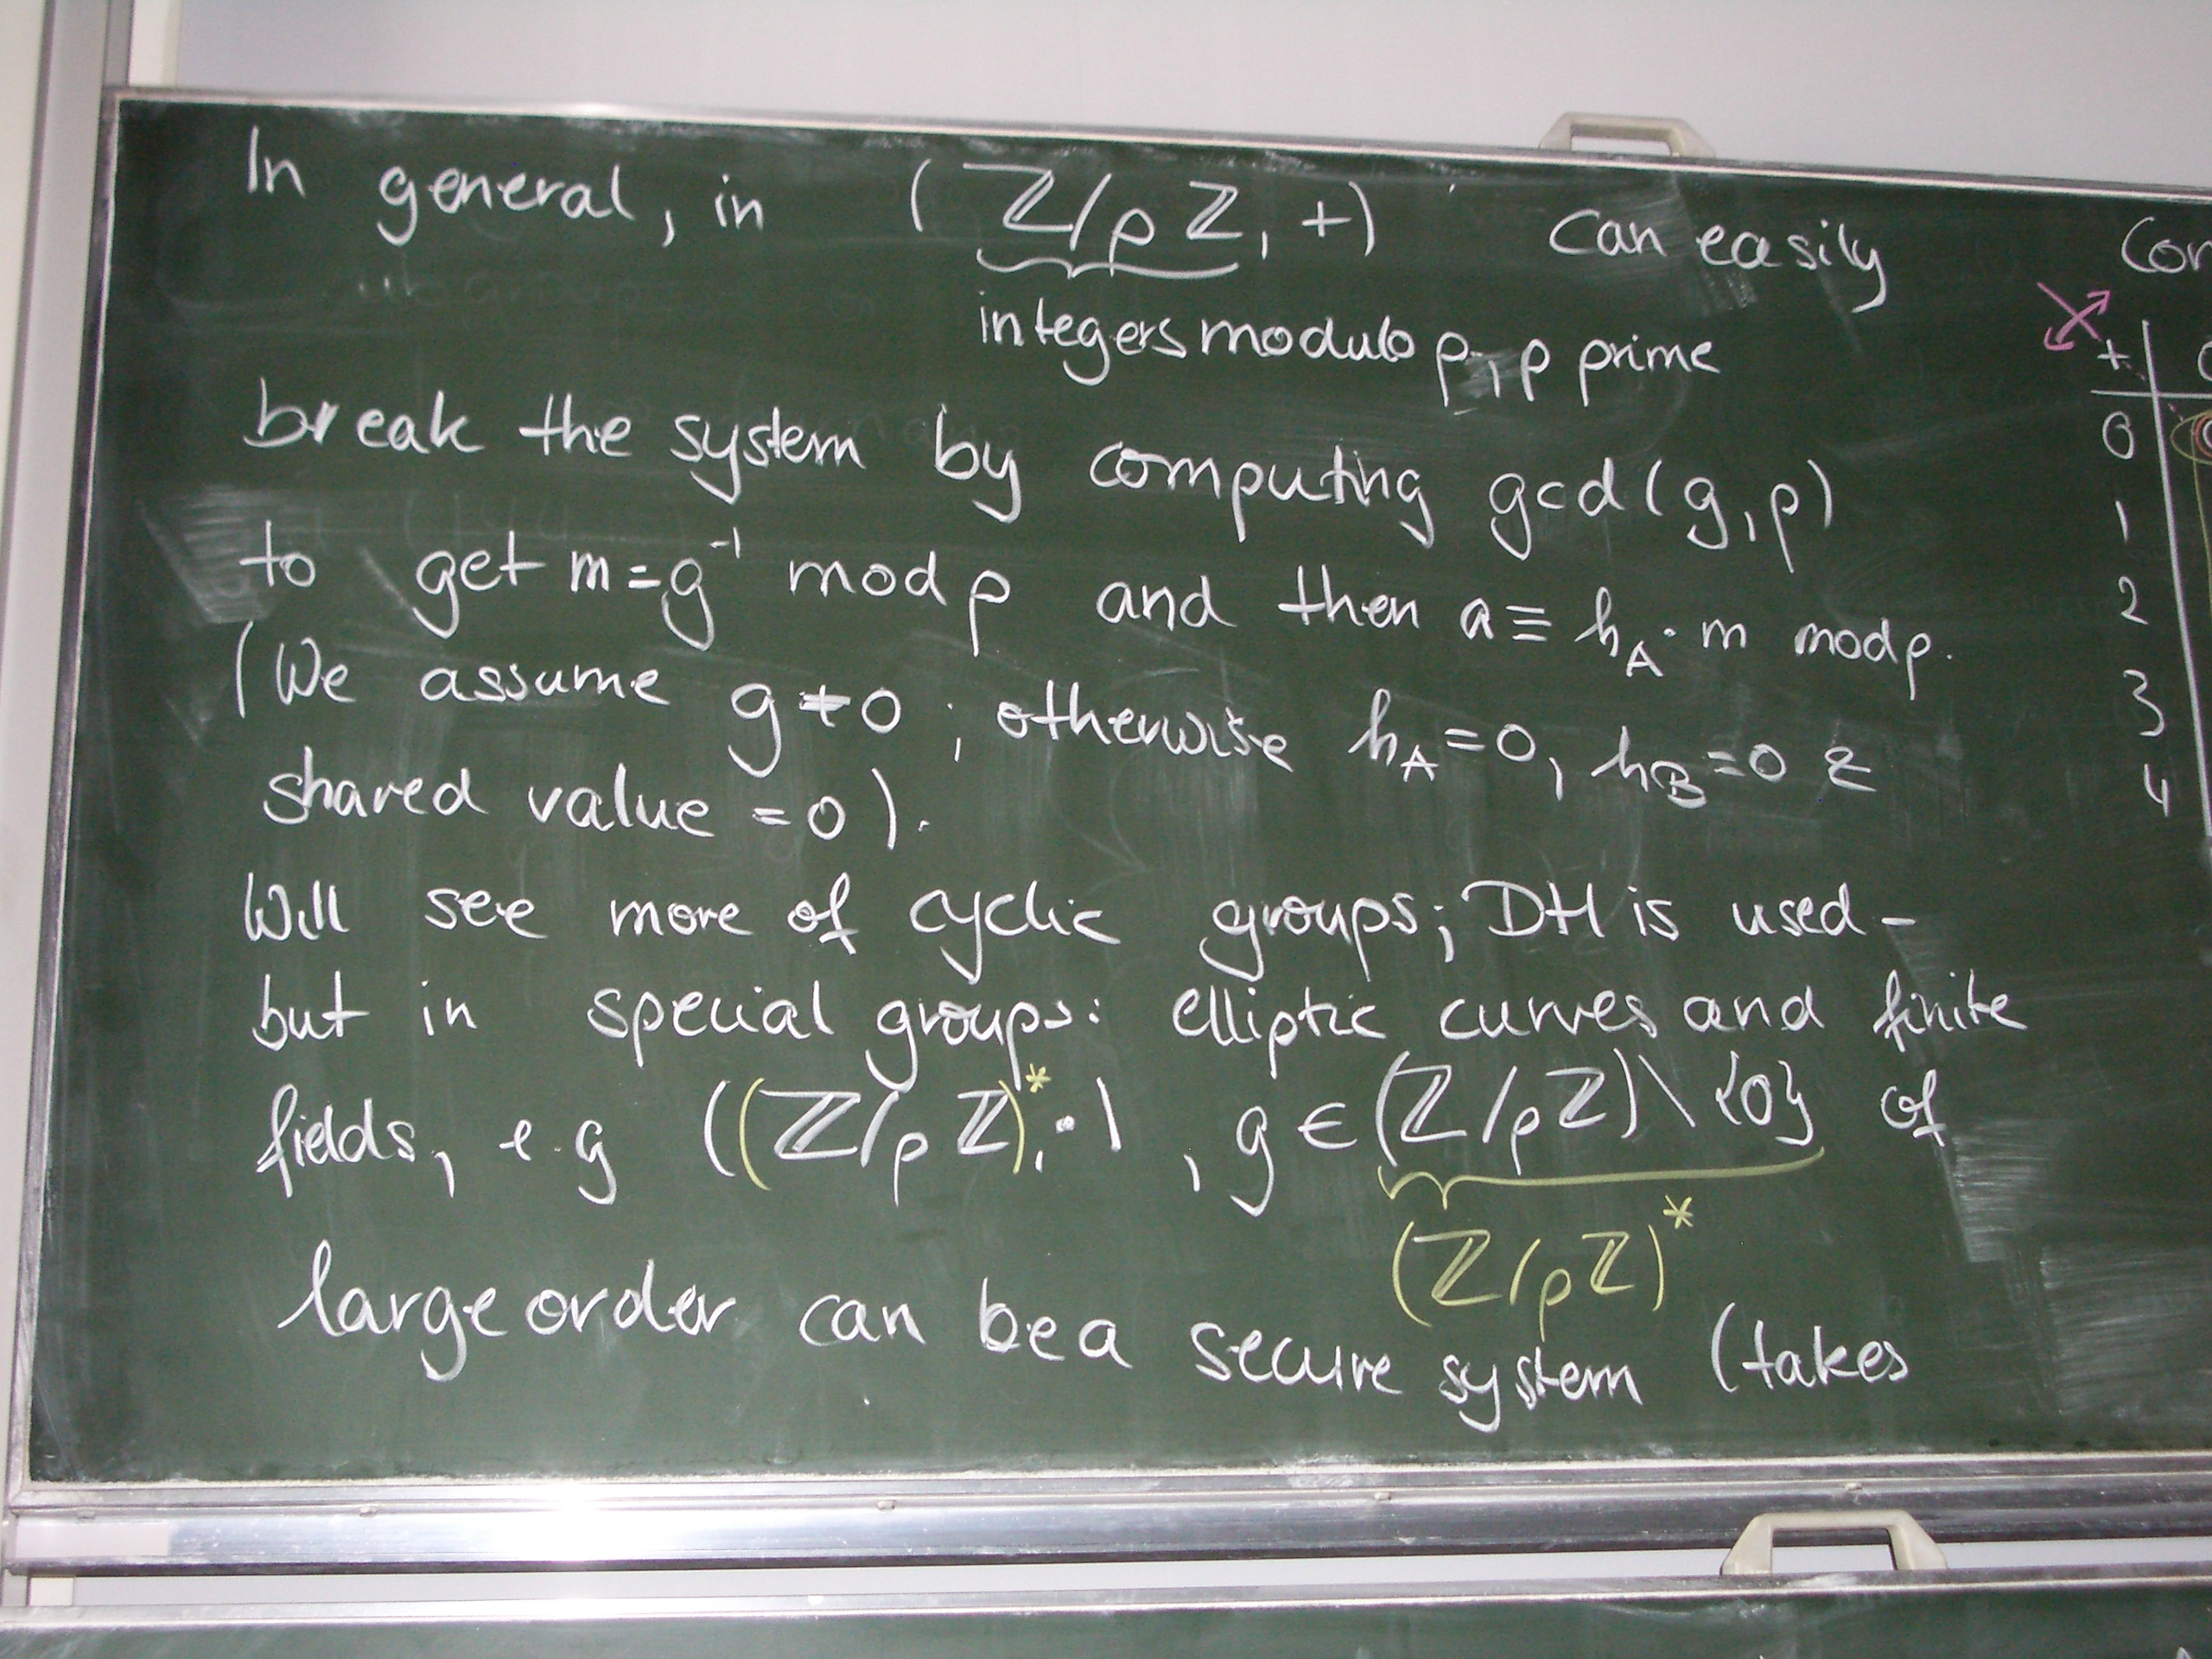 In general, in (ℤ/pℤ, +) can easily
integers modulo p, p prime
break the system by computing gcd(g,p)
to get m=g⁻¹ mod p and then a≡ h_A·m mod p.
(We assume g≠0; otherwise h_A=0, h_B=0 &
shared value =0).
Will see more of cyclic groups; DH is used -
but in special groups: elliptic curves and finite
fields, e.g ((ℤ/pℤ)*,·), g∈(ℤ/pℤ)\{0} of
(ℤ/pℤ)*
large order can be a secure system (takes
+
0
1
2
3
4